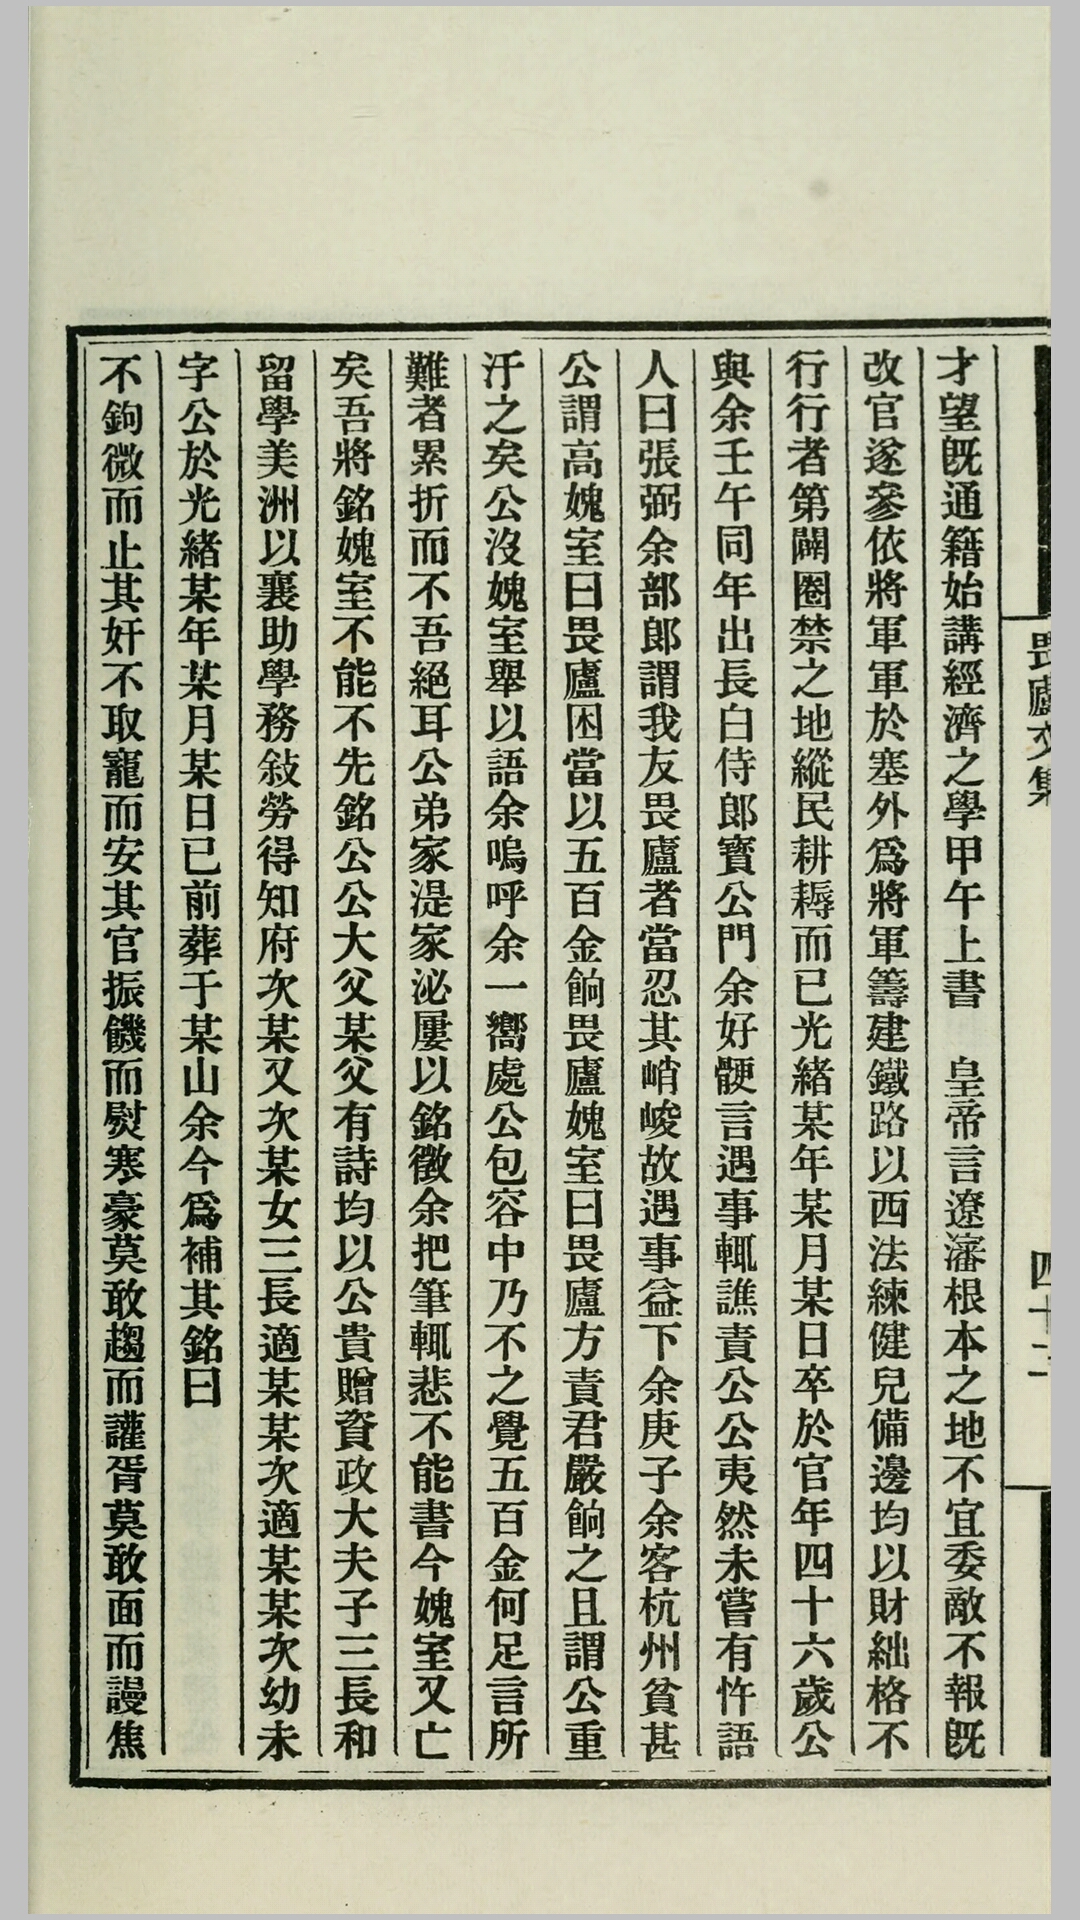 畏廬文集
四十二
才望既通籍始講經濟之學甲午上書　皇帝言遼瀋根本之地不宜委敵不報既
改官遂參依將軍軍於塞外爲將軍籌建鐵路以西法練健兒備邊均以財絀格不
行行者第闢圈禁之地縱民耕耨而已光緒某年某月某日卒於官年四十六歲公
與余壬午同年出長白侍郎寳公門余好骾言遇事輒譙責公公夷然未嘗有忤語
人曰張弼余部郎謂我友畏廬者當忍其峭峻故遇事益下余庚子余客杭州貧甚
公謂高媿室曰畏廬困當以五百金餉畏廬媿室曰畏廬方責君嚴餉之且謂公重
汙之矣公沒媿室舉以語余嗚呼余一嚮處公包容中乃不之覺五百金何足言所
難者累折而不吾絕耳公弟家湜家泌屢以銘徵余把筆輒悲不能書今媿室又亡
矣吾將銘媿室不能不先銘公公大父某父有詩均以公貴贈資政大夫子三長和
留學美洲以襄助學務敍勞得知府次某又次某女三長適某某次適某某次幼未
字公於光緒某年某月某日已前葬于某山余今爲補其銘曰
不鉤微而止其奸不取寵而安其官振饑而熨寒豪莫敢趨而讙胥莫敢面而謾焦